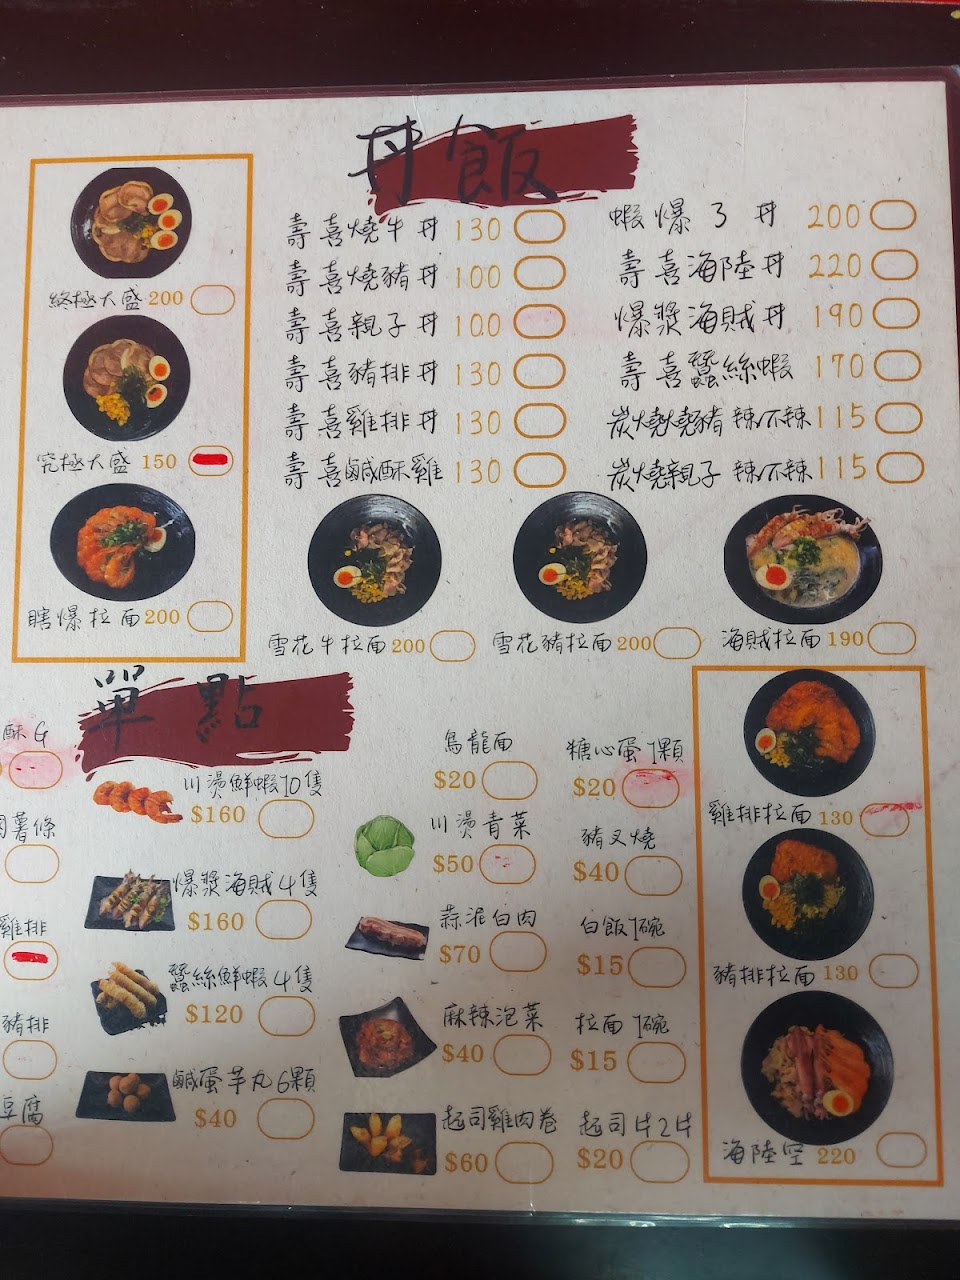 丼飯
壽喜燒牛丼 130
壽喜燒豬丼 100
壽喜親子丼 100
壽喜豬排丼 130
壽喜雞排丼 130
壽喜鹹酥雞 130
蝦爆了丼 200
壽喜海陸丼 220
爆漿海賊丼 190
壽喜蠶絲蝦 170
炭燒燒豬 辣/不辣 115
炭燒親子 辣/不辣 115
終極大盛 200
究極大盛 150
瞎爆拉面 200
雪花牛拉面 200
雪花豬拉面 200
海賊拉面 190
單點
酥G
薯條
雞排
豬排
豆腐
川燙鮮蝦10隻
$160
爆漿海賊4隻
$160
蠶絲鮮蝦4隻
$120
鹹蛋芋丸6顆
$40
烏龍面
$20
川燙青菜
$50
蒜泥白肉
$70
麻辣泡菜
$40
起司雞肉卷
$60
糖心蛋1顆
$20
豬叉燒
$40
白飯1碗
$15
拉面1碗
$15
起司片2片
$20
雞排拉面 130
豬排拉面 130
海陸空 220